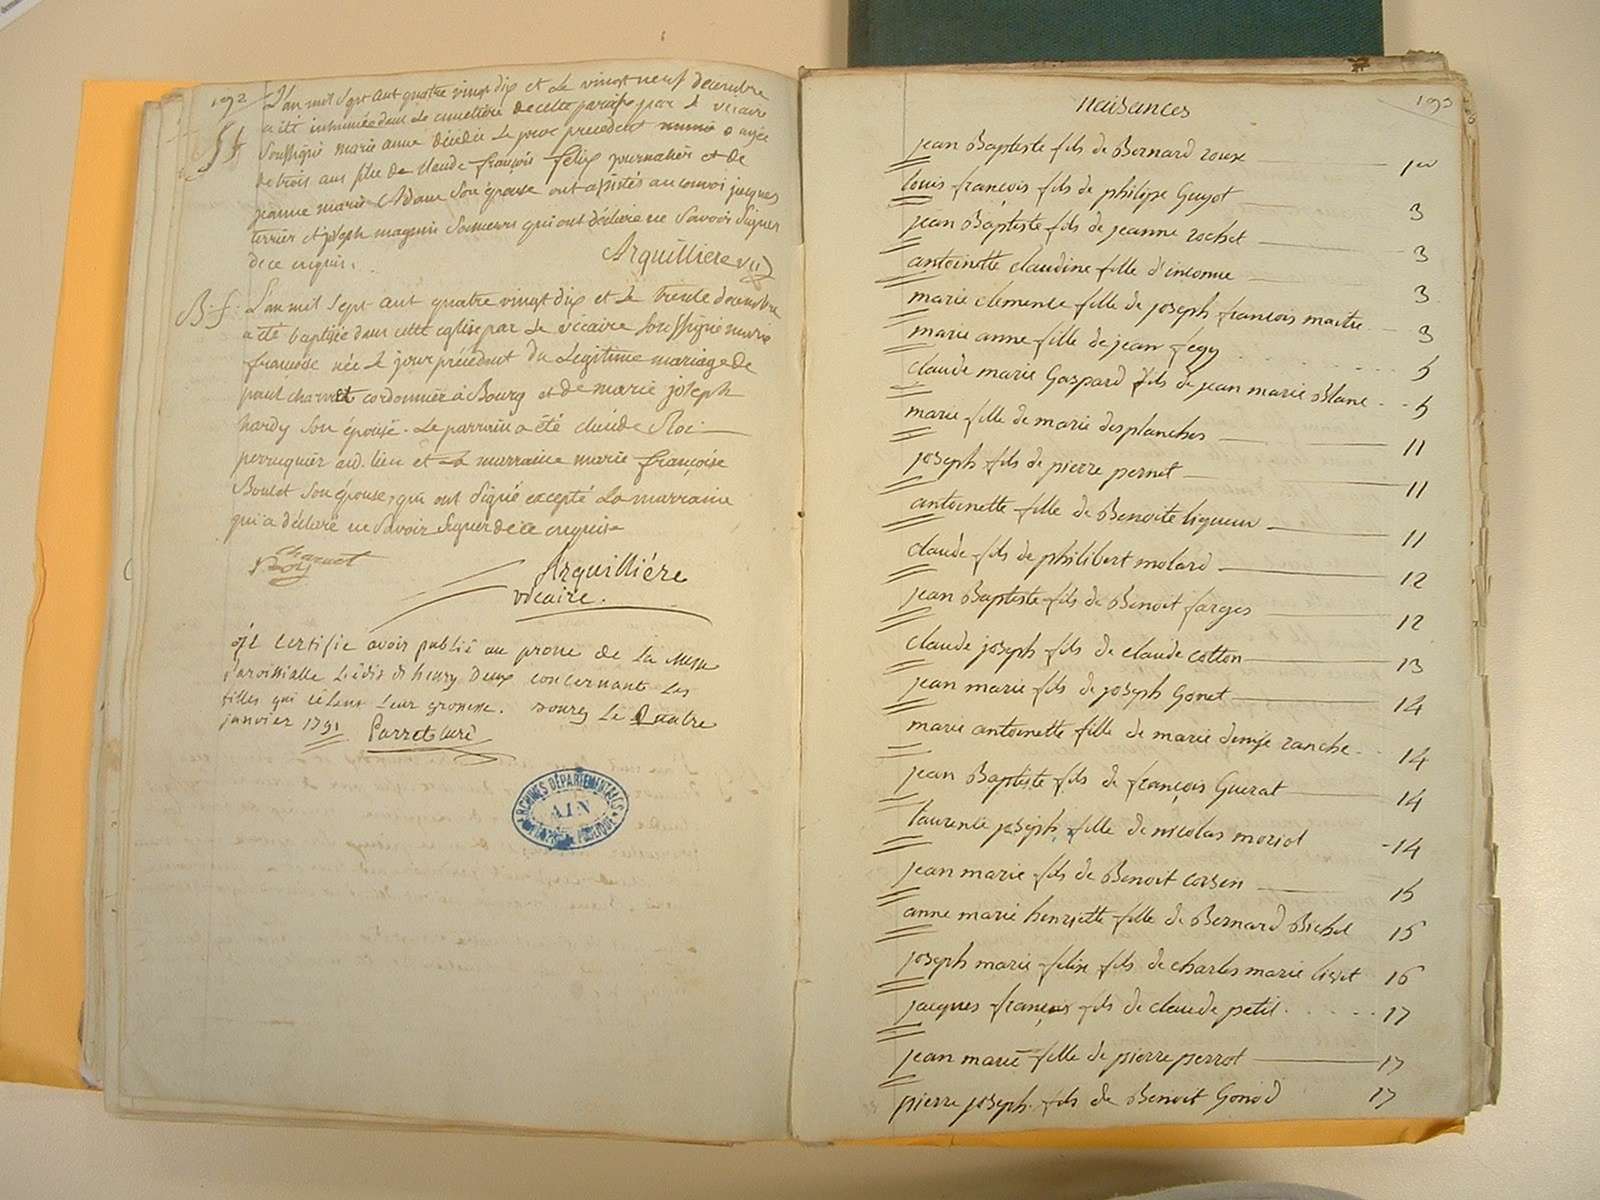 192
S.f.
L'an mil sept cent quatre vingt dix et le vingt neuf decembre
a été inhumée dans le cimetière de cette paroisse par le vicaire
soussigné marie anne décédée le jour precedent agée
de trois ans fille de claude françois felix journalier et de
jeanne marie Adam son épouse ont assistés au convoi jacques
terrier et joseph magnin sonneurs qui ont déclaré ne savoir signer
de ce enquis.
Arquilliere vic
B.f.
L'an mil sept cent quatre vingt dix et le trente decembre
a été baptisée dans cette eglise par le vicaire soussigné marie
françoise née le jour précédent du légitime mariage de
paul charvet cordonnier à Bourg et de marie joseph
hardy son épouse. Le parrain a été claude Roi
perruquier aud. lieu et la marraine marie françoise
Boulot son épouse, qui ont signé excepté la marraine
qui a déclaré ne savoir signer de ce enquise
charvet
Roi
Arquilliére
vicaire.
je certifie avoir publié au prone de la Messe
paroissialle L'édit de henry deux concernant les
filles qui cèlent leur grossesse. Bourg le quatre
janvier 1791 Parret curé
ARCHIVES DÉPARTEMENTALES
AIN
193
naisances
jean Baptiste fils de Bernard roux
louis françois fils de philippe Guyot 3
jean Baptiste fils de jeanne rochet 3
antoinette claudine fille d'inconnue 3
marie clemence fille de joseph françois maitre 3
marie anne fille de jean fegy 5
claude marie Gaspard fils de jean marie Blanc 5
marie fille de marie desplanches 11
joseph fils de pierre pernet 11
antoinette fille de Benoite liqueur 11
claude fils de philibert molard 12
jean Baptiste fils de Benoit farges 12
claude joseph fils de claude cotton 13
jean marie fils de joseph Gonet 14
marie antoinette fille de marie denise ranche 14
jean Baptiste fils de françois Guerat 14
laurence joseph fille de nicolas moriot 14
jean marie fils de Benoit corsin 15
anne marie henriette fille de Bernard Bichel 15
joseph marie felix fils de charles marie livet 16
jacques françois fils de claude petit 17
jean marie fille de pierre perrot 17
pierre joseph fils de Benoit Gonod 17